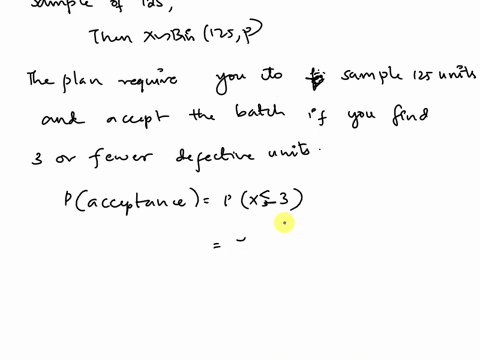 sample of 125,
Then X~Bin (125,p)
The plan require you to sample 125 units
and accept the batch if you find
3 or fewer defective units.
P(acceptance) = P(X≤3)
=